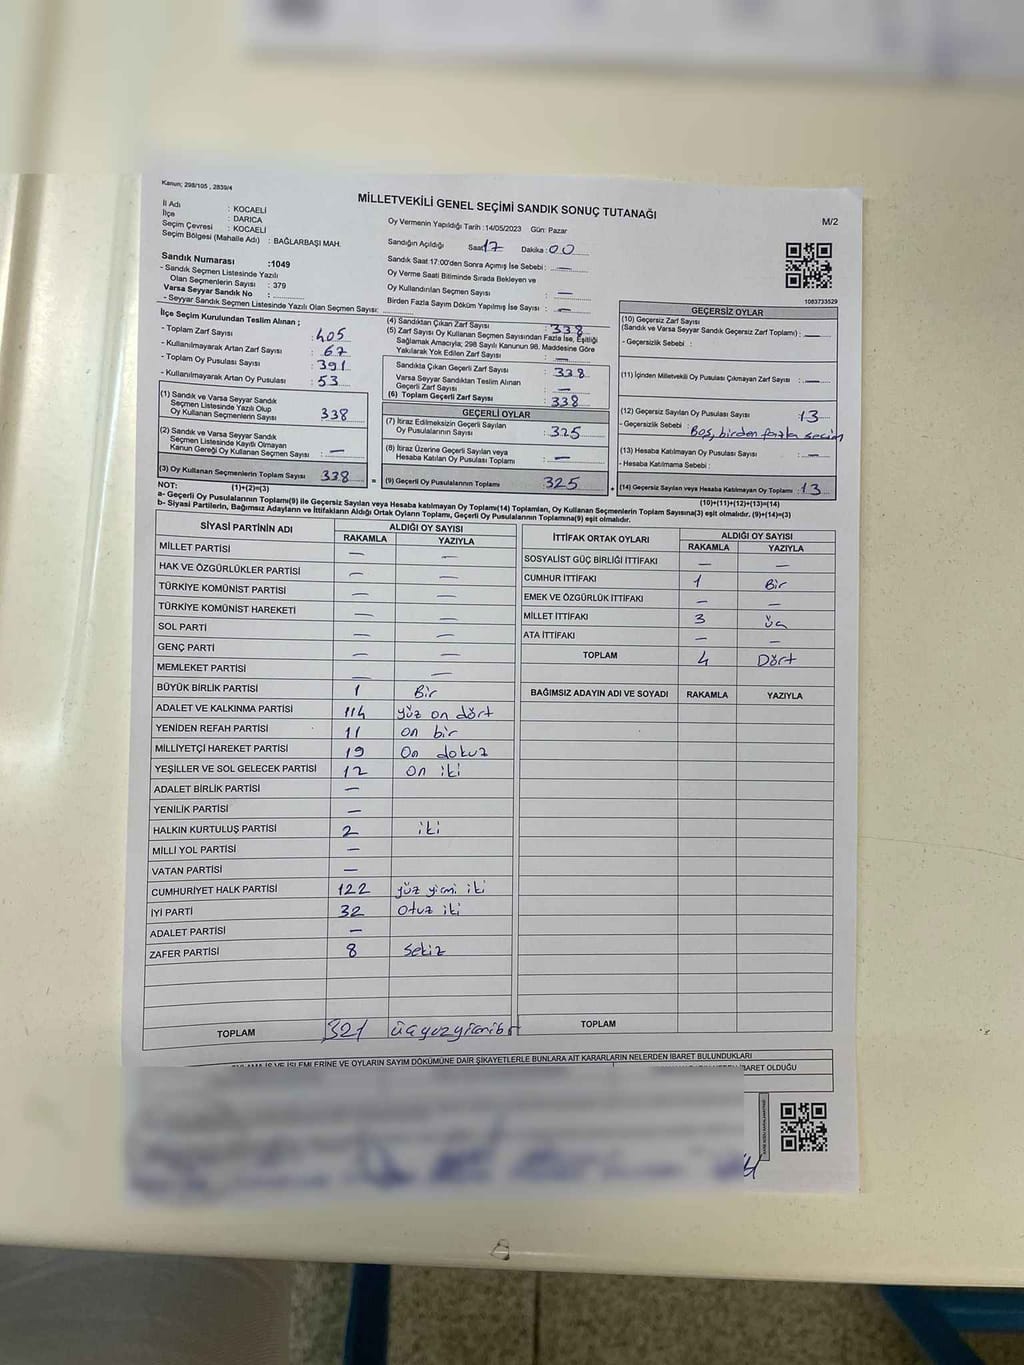 Kanun; 298/105 , 2839/4
MİLLETVEKİLİ GENEL SEÇİMİ SANDIK SONUÇ TUTANAĞI
M/2
İl Adı : KOCAELİ
İlçe : DARICA
Seçim Çevresi : KOCAELİ
Seçim Bölgesi (Mahalle Adı) : BAĞLARBAŞI MAH.
Oy Vermenin Yapıldığı Tarih :14/05/2023 Gün: Pazar
Sandığın Açıldığı Saat 17 Dakika: 00
Sandık Saat 17:00'den Sonra Açımış İse Sebebi : —
Oy Verme Saati Bitiminde Sırada Bekleyen ve
Oy Kullandırılan Seçmen Sayısı : —
Birden Fazla Sayım Döküm Yapılmış İse Sayısı : —
1083733529
Sandık Numarası :1049
- Sandık Seçmen Listesinde Yazılı
Olan Seçmenlerin Sayısı : 379
Varsa Seyyar Sandık No :
- Seyyar Sandık Seçmen Listesinde Yazılı Olan Seçmen Sayısı:
İlçe Seçim Kurulundan Teslim Alınan ;
- Toplam Zarf Sayısı : 405
- Kullanılmayarak Artan Zarf Sayısı : 67
- Toplam Oy Pusulası Sayısı : 391
- Kullanılmayarak Artan Oy Pusulası : 53
(1) Sandık ve Varsa Seyyar Sandık
Seçmen Listesinde Yazılı Olup
Oy Kullanan Seçmenlerin Sayısı : 338
(2) Sandık ve Varsa Seyyar Sandık
Seçmen Listesinde Kayıtlı Olmayan
Kanun Gereği Oy Kullanan Seçmen Sayısı : —
(3) Oy Kullanan Seçmenlerin Toplam Sayısı : 338
(1)+(2)=(3)
(4) Sandıktan Çıkan Zarf Sayısı : 338
(5) Zarf Sayısı Oy Kullanan Seçmen Sayısından Fazla İse, Eşitliği
Sağlamak Amacıyla; 298 Sayılı Kanunun 98. Maddesine Göre
Yakılarak Yok Edilen Zarf Sayısı : —
Sandıkta Çıkan Geçerli Zarf Sayısı : 338
Varsa Seyyar Sandıktan Teslim Alınan
Geçerli Zarf Sayısı : —
(6) Toplam Geçerli Zarf Sayısı : 338
GEÇERLİ OYLAR
(7) İtiraz Edilmeksizin Geçerli Sayılan
Oy Pusulalarının Sayısı : 325
(8) İtiraz Üzerine Geçerli Sayılan veya
Hesaba Katılan Oy Pusulası Toplamı : —
= (9) Geçerli Oy Pusulalarının Toplamı : 325
GEÇERSİZ OYLAR
(10) Geçersiz Zarf Sayısı
(Sandık ve Varsa Seyyar Sandık Geçersiz Zarf Toplamı) : —
- Geçersizlik Sebebi :
(11) İçinden Milletvekili Oy Pusulası Çıkmayan Zarf Sayısı : —
(12) Geçersiz Sayılan Oy Pusulası Sayısı : 13
- Geçersizlik Sebebi : Boş, birden fazla seçim
(13) Hesaba Katılmayan Oy Pusulası Sayısı : —
- Hesaba Katılmama Sebebi :
+ (14) Geçersiz Sayılan veya Hesaba Katılmayan Oy Toplamı : 13
(10)+(11)+(12)+(13)=(14)
NOT:
a- Geçerli Oy Pusulalarının Toplamı(9) ile Geçersiz Sayılan veya Hesaba katılmayan Oy Toplamı(14) Toplamları, Oy Kullanan Seçmenlerin Toplam Sayısına(3) eşit olmalıdır. (9)+(14)=(3)
b- Siyasi Partilerin, Bağımsız Adayların ve İttifakların Aldığı Ortak Oyların Toplamı, Geçerli Oy Pusulalarının Toplamına(9) eşit olmalıdır.
SİYASİ PARTİNİN ADI
ALDIĞI OY SAYISI
RAKAMLA YAZIYLA
MİLLET PARTİSİ — —
HAK VE ÖZGÜRLÜKLER PARTİSİ — —
TÜRKİYE KOMÜNİST PARTİSİ — —
TÜRKİYE KOMÜNİST HAREKETİ — —
SOL PARTİ — —
GENÇ PARTİ — —
MEMLEKET PARTİSİ — —
BÜYÜK BİRLİK PARTİSİ 1 Bir
ADALET VE KALKINMA PARTİSİ 114 yüz on dört
YENİDEN REFAH PARTİSİ 11 on bir
MİLLİYETÇİ HAREKET PARTİSİ 19 On dokuz
YEŞİLLER VE SOL GELECEK PARTİSİ 12 on iki
ADALET BİRLİK PARTİSİ —
YENİLİK PARTİSİ —
HALKIN KURTULUŞ PARTİSİ 2 iki
MİLLİ YOL PARTİSİ —
VATAN PARTİSİ —
CUMHURİYET HALK PARTİSİ 122 yüz yirmi iki
İYİ PARTİ 32 Otuz iki
ADALET PARTİSİ —
ZAFER PARTİSİ 8 Sekiz
TOPLAM 321 üçyüzyirmibir
İTTİFAK ORTAK OYLARI
ALDIĞI OY SAYISI
RAKAMLA YAZIYLA
SOSYALİST GÜÇ BİRLİĞİ İTTİFAKI — —
CUMHUR İTTİFAKI 1 Bir
EMEK VE ÖZGÜRLÜK İTTİFAKI — —
MİLLET İTTİFAKI 3 üç
ATA İTTİFAKI — —
TOPLAM 4 Dört
BAĞIMSIZ ADAYIN ADI VE SOYADI RAKAMLA YAZIYLA
TOPLAM
İŞ VE İŞLEMLERİNE VE OYLARIN SAYIM DÖKÜMÜNE DAİR ŞİKAYETLERLE BUNLARA AİT KARARLARIN NELERDEN İBARET BULUNDUKLARI
İBARET OLDUĞU